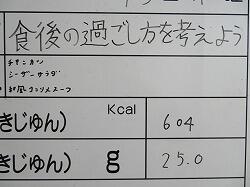 食後の過ごし方を考えよう
チキンカツ
シーザーサラダ
和風コンソメスープ
きじゅん) Kcal 604
きじゅん) g 25.0